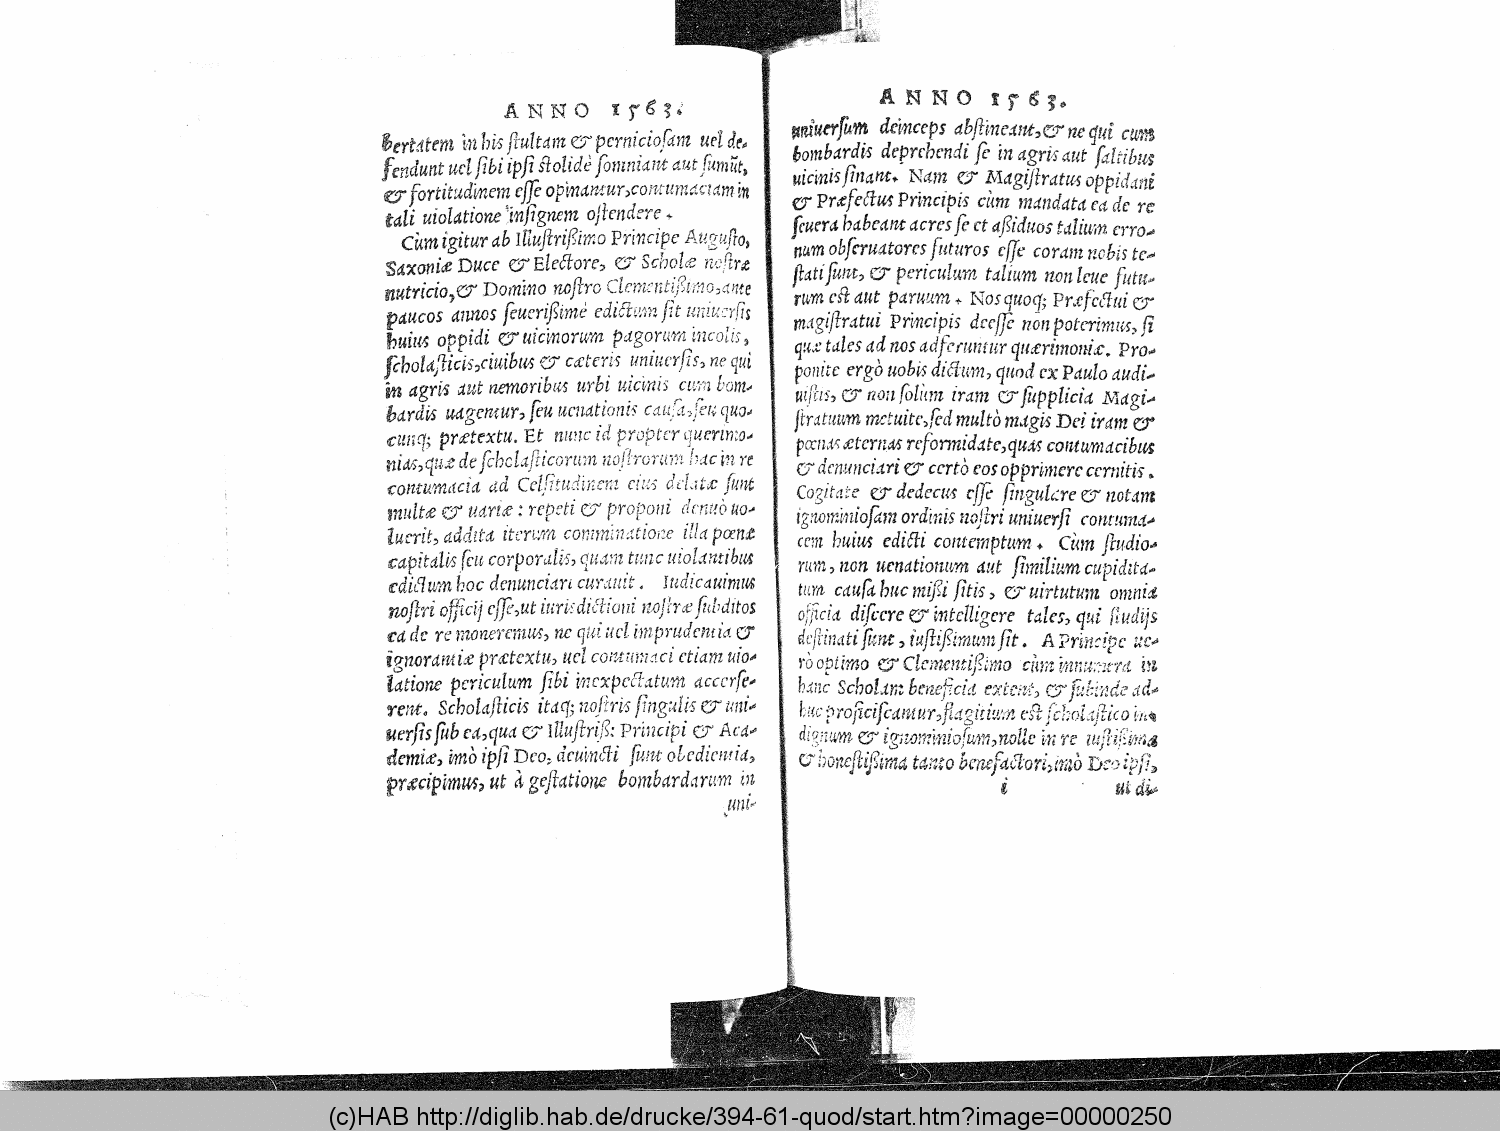 ANNO 1563.
bertatem in his ſtultam & pernicioſam uel de-
fendunt uel ſibi ipſi ſtolidè ſomniant aut ſumūt,
& fortitudinem eſſe opinantur, contumaciam in
tali uiolatione inſignem oſtendere.
Cùm igitur ab Illuſtrißimo Principe Auguſto,
Saxoniæ Duce & Electore, & Scholæ noſtræ
nutricio, & Domino noſtro Clementißimo, ante
paucos annos ſeuerißimè edictum ſit uniuerſis
huius oppidi & uicinorum pagorum incolis,
ſcholaſticis, ciuibus & cæteris uniuerſis, ne qui
in agris aut nemoribus urbi uicinis cum bom-
bardis uagentur, ſeu uenationis cauſa, ſeu quo-
cunq; prætextu. Et nunc id propter querimo-
nias, quæ de ſcholaſticorum noſtrorum hac in re
contumacia ad Celſitudinem eius delatæ ſunt
multæ & uariæ: repeti & proponi denuò uo-
luerit, addita iterum comminatione illa pœnæ
capitalis ſeu corporalis, quam tunc uiolantibus
edictum hoc denunciari curauit. Iudicauimus
noſtri officij eſſe, ut iurisdictioni noſtræ ſubditos
ea de re moneremus, ne qui uel imprudentia &
ignorantiæ prætextu, uel contumaci etiam uio-
latione periculum ſibi inexpectatum accerſe-
rent. Scholaſticis itaq; noſtris ſingulis & uni-
uerſis ſub ea, qua & Illuſtriß: Principi & Aca-
demiæ, imò ipſi Deo, deuincti ſunt obedientia,
præcipimus, ut à geſtatione bombardarum in
uni-
ANNO 1563.
uniuerſum deinceps abſtineant, & ne qui cum
bombardis deprehendi ſe in agris aut ſaltibus
uicinis ſinant. Nam & Magiſtratus oppidani
& Præfectus Principis cùm mandata ea de re
ſeuera habeant acres ſe et aßiduos talium erro-
num obſeruatores futuros eſſe coram nobis te-
ſtati ſunt, & periculum talium non leue futu-
rum eſt aut paruum. Nos quoq; Præfectui &
magiſtratui Principis deeſſe non poterimus, ſi
quæ tales ad nos adferuntur quærimoniæ. Pro-
ponite ergò uobis dictum, quod ex Paulo audi-
uiſtis, & non ſolùm iram & ſupplicia Magi-
ſtratuum metuite, ſed multò magis Dei iram &
pœnas æternas reformidate, quas contumacibus
& denunciari & certò eos opprimere cernitis.
Cogitate & dedecus eſſe ſingulare & notam
ignominioſam ordinis noſtri uniuerſi contuma-
cem huius edicti contemptum. Cùm ſtudio-
rum, non uenationum aut ſimilium cupidita-
tum cauſa huc mißi ſitis, & uirtutum omnia
officia diſcere & intelligere tales, qui ſtudijs
deſtinati ſunt, iuſtißimum ſit. A Principe ue-
rò optimo & Clementißimo cùm innumera in
hanc Scholam beneficia extent, & ſubinde ad-
huc proficiſcantur, flagitium eſt ſcholaſtico in-
dignum & ignominioſum, nolle in re iuſtißima
& honeſtißima tanto benefactori, imò Deo ipſi,
i ut di-
(c)HAB http://diglib.hab.de/drucke/394-61-quod/start.htm?image=00000250